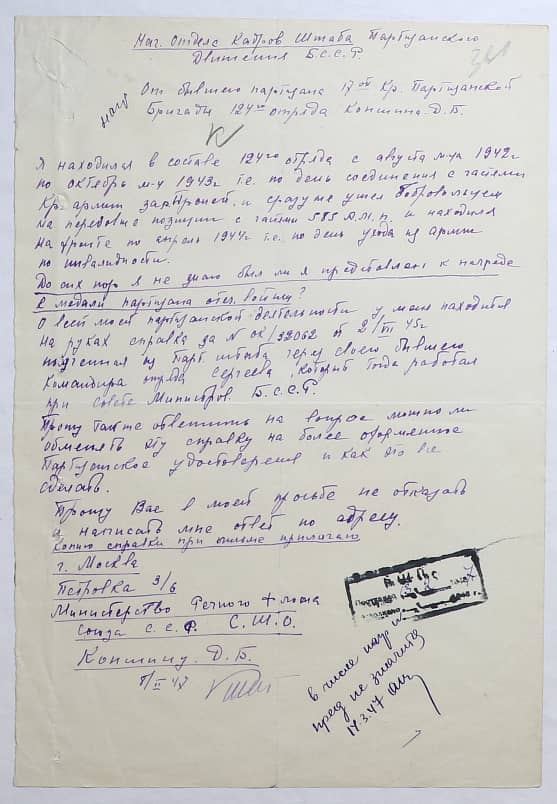 Нач. Отдела Кадров Штаба Партизанского
Движения Б.С.С.Р.
От бывшего партизана 17ой Кр. Партизанской
Бригады 124го отряда Коншина. Д. Б.
Я находился в составе 124го отряда с августа м-ца 1942г
по октябрь м-ц 1943г т.е. по день соединения с частями
Кр. армии и сразу же ушел добровольцем
на передовые позиции с частями 585 и находился
на фронте по апрель 1944г т.е. по день ухода из армии
по инвалидности.
До сих пор я не знаю был ли я представлен к награде
к медали партизана отеч. войны?
О всей моей партизанской деятельности у меня находится
на руках справка за № ок/32062 от 2/VII 45г
полученная из Парт. штаба через своего бывшего
командира отряда Сергеева, который тогда работал
при Совете Министров Б.С.С.Р.
Прошу также ответить на вопрос можно ли
обменять эту справку на более оформленное
Партизанское удостоверение и как это все
сделать.
Прошу Вас в моей просьбе не отказать
и написать мне ответ по адресу.
Копию справки при письме прилагаю
г. Москва
Петровка 3/6
Министерство Речного Флота
Союза С.С.Р. С.Ш.О.
Коншину. Д. Б.
/II 47
в числе
не значится
17.3.47